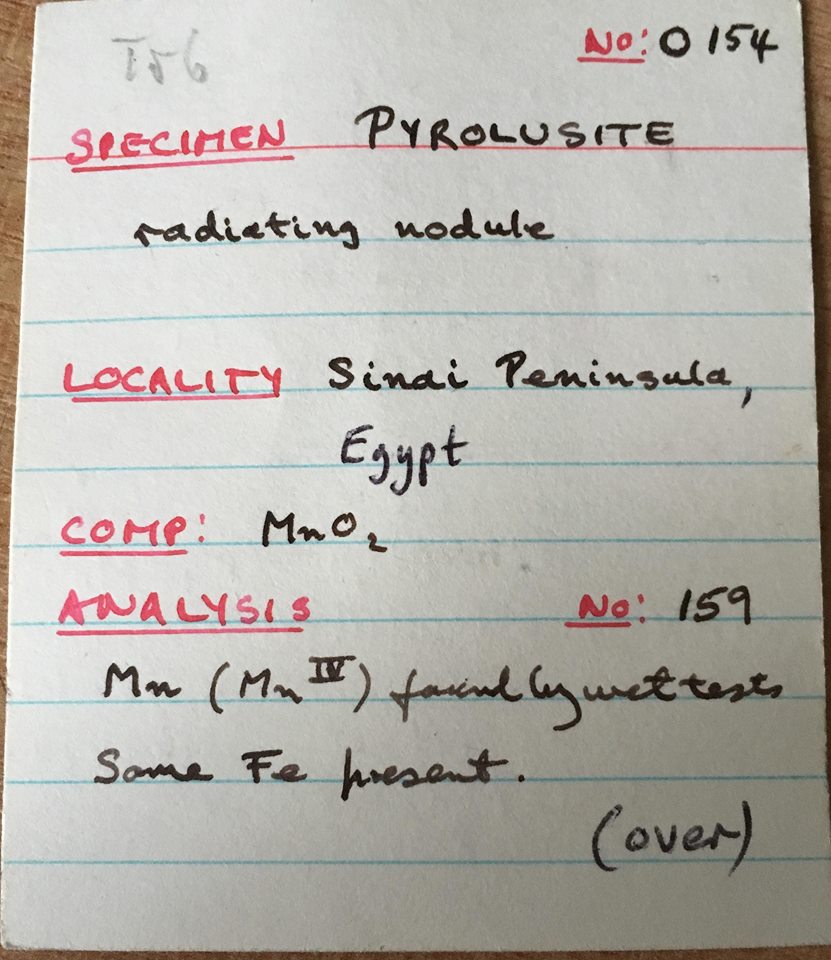 T56
No: O 154
SPECIMEN PYROLUSITE
radiating nodule
LOCALITY Sinai Peninsula,
Egypt
COMP: MnO₂
ANALYSIS No: 159
Mn (Mn^IV) found by wet tests
Some Fe present.
(over)